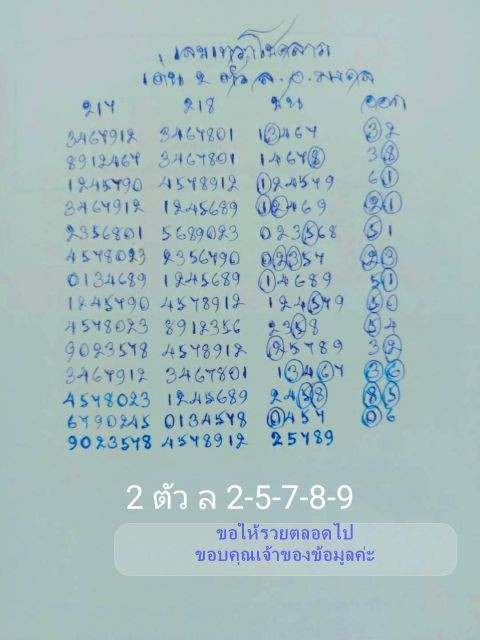 เลขเทวาโชคลาภ
เด่น 2 ตัว ล. อ. มงคล
217 218 ชน ออก
3467912 3467801 13467 32
8912467 3467801 14678 38
1245790 4578912 124579 61
3467912 1245689 12469 21
2356801 5689023 023568 51
4578023 2356790 02357 23
0134689 1245689 14689 51
1245790 4578912 124579 50
4578023 8912356 2358 54
9023578 4578912 25789 32
3467912 3467801 13467 36
4578023 1245689 2458 85
6790245 0134578 0457 06
9023578 4578912 25789
2 ตัว ล 2-5-7-8-9
ขอให้รวยตลอดไป
ขอบคุณเจ้าของข้อมูลค่ะ